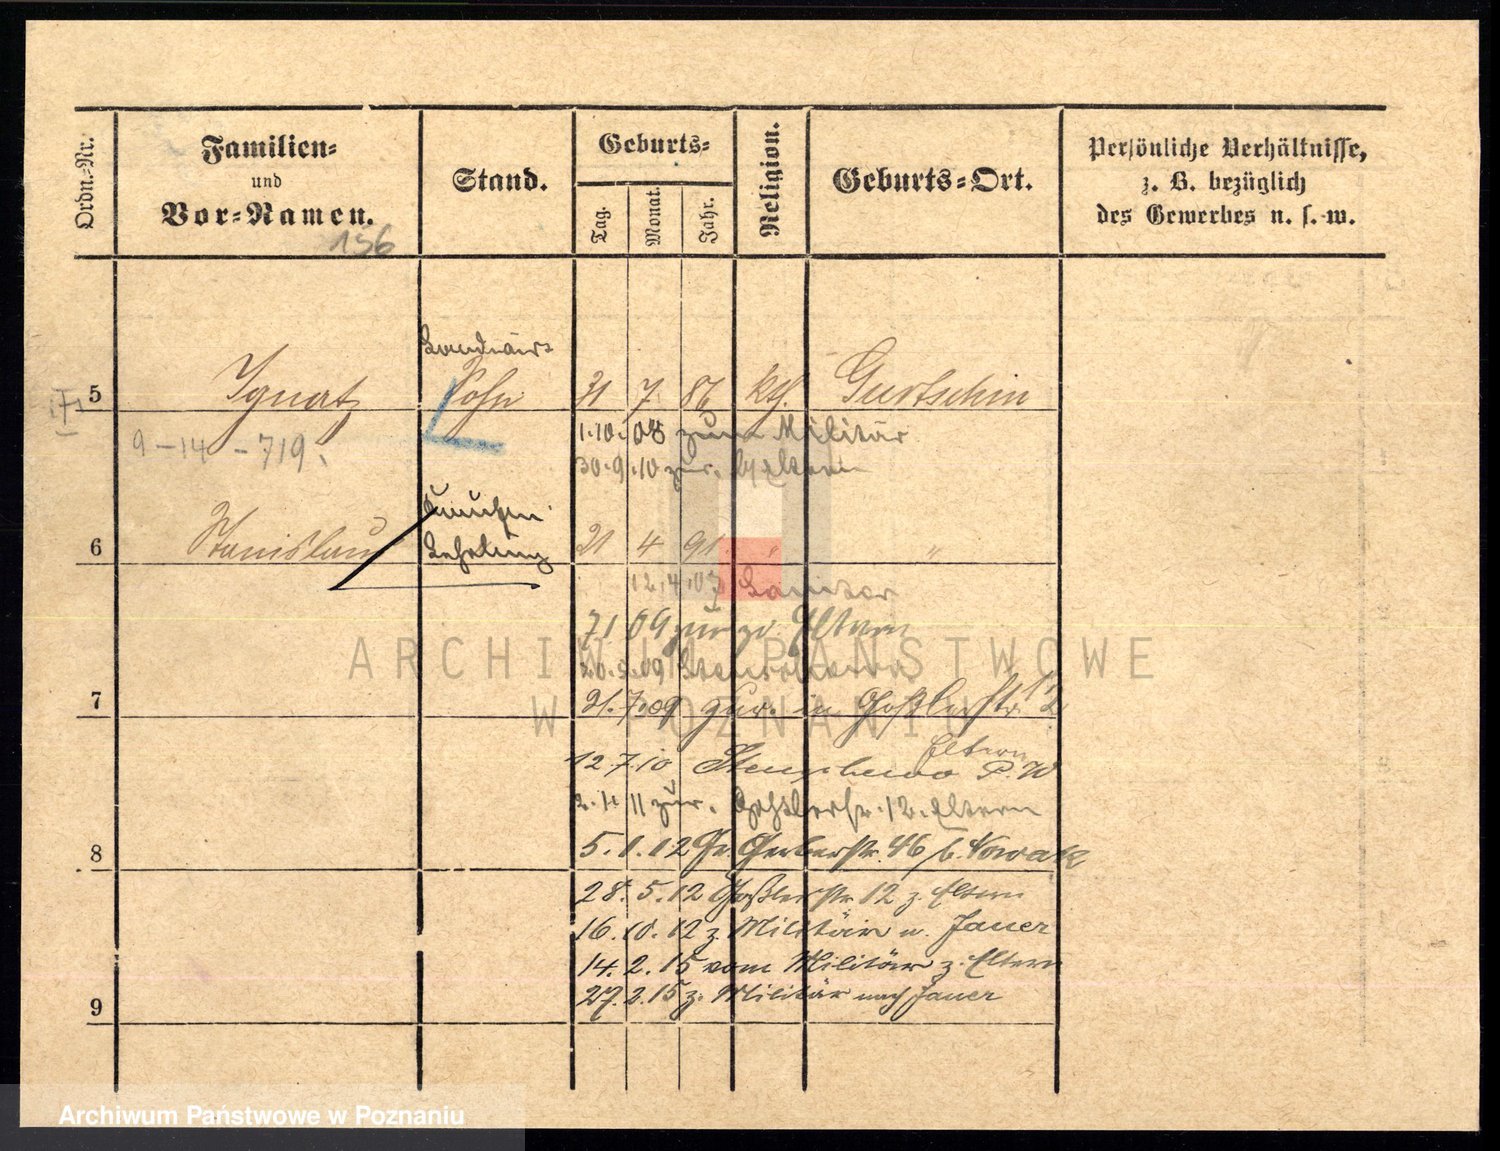 Ordn.-Nr.
Familien-
und
Vor-Namen.
156
Stand.
Geburts-
Tag.
Monat.
Jahr.
Religion.
Geburts-Ort.
Persönliche Verhältnisse,
z. B. bezüglich
des Gewerbes u. s. w.
5 Ignatz Sohn 31 7 86 kth. Gurtschin
9-14-719.
1.10.08 zum Militär
30.9.10 zur. Eltern
6 Stanislaus Lehrling 21 4 91 " "
12.4.07
7 1 09 Eltern
20.5.09
7 21.7.09 zur. in Goßlerstr. 12
Eltern
12.7.10 P. W
2.1.11 zur. Goßlerstr. 12. Eltern
8 5.1.12 Gr. Gerberstr. 46 b. Nowak
28.5.12 Goßlerstr 12 z. Eltern
16.10.12 z. Militär n. Jauer
14.2.15 vom Militär z. Eltern
9 27.2.15 z. Militär nach Jauer
ARCHIWUM PAŃSTWOWE
W POZNANIU
Archiwum Państwowe w Poznaniu